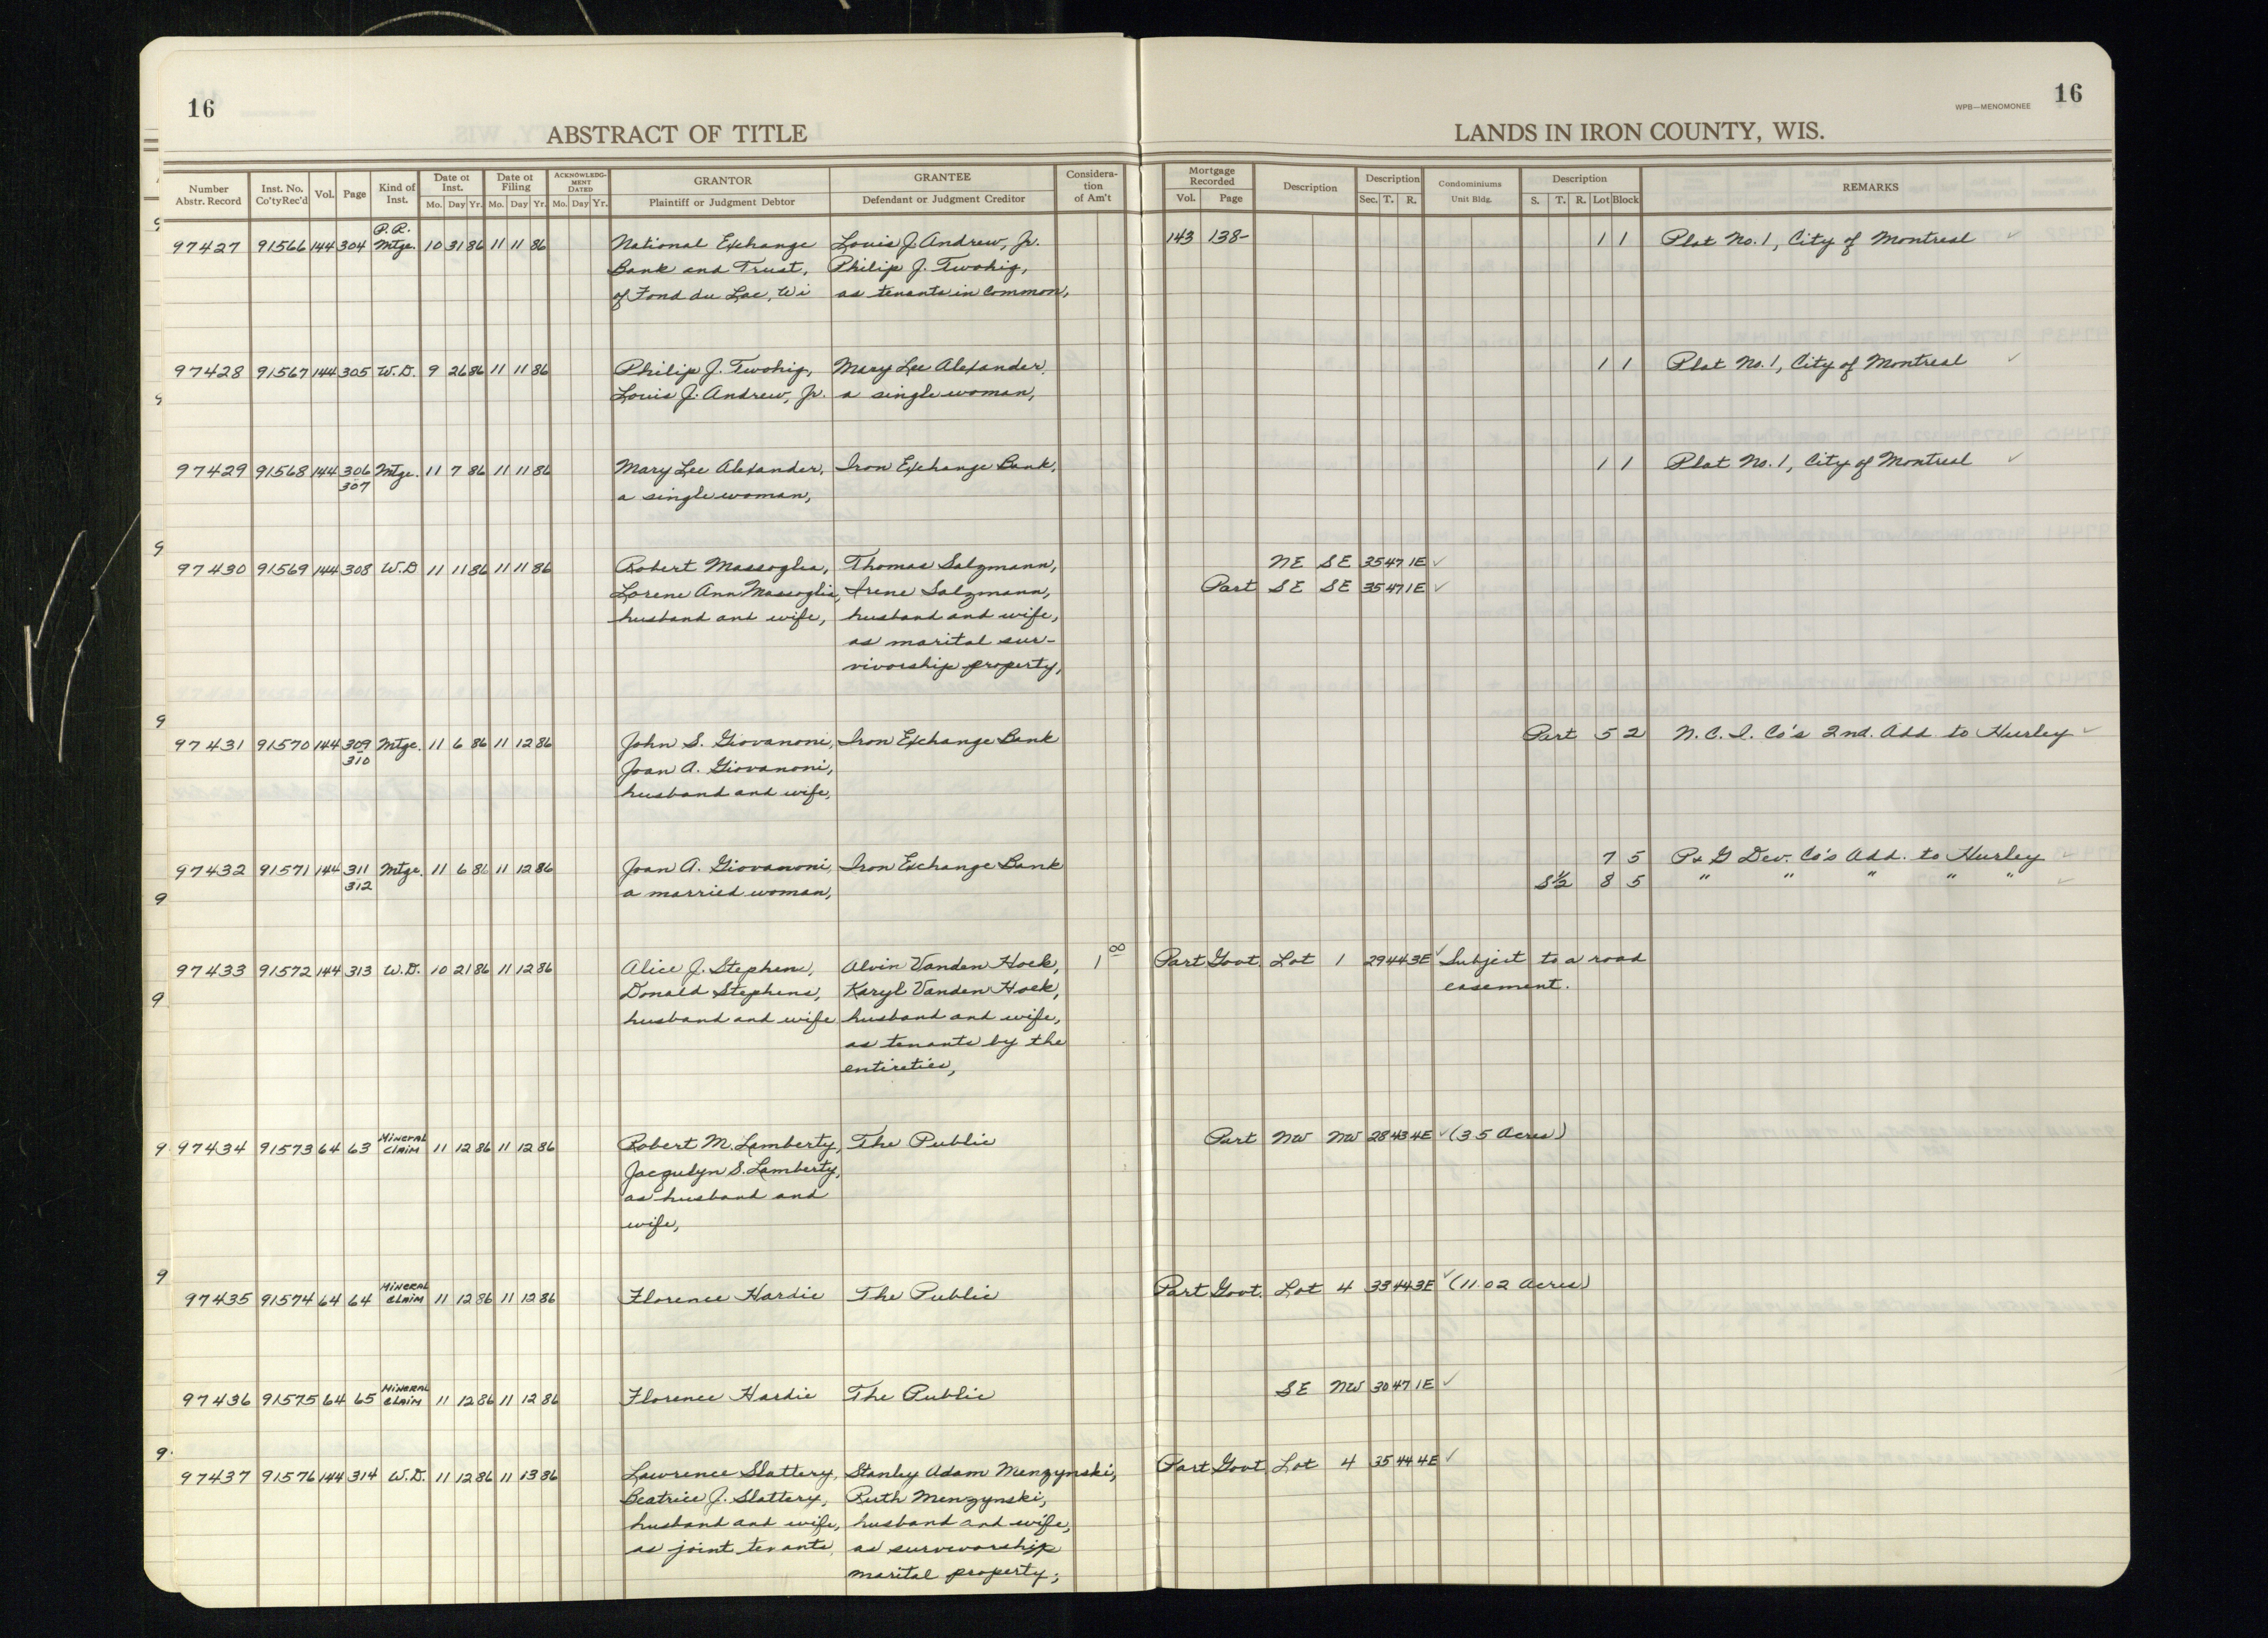 16
ABSTRACT OF TITLE
LANDS IN IRON COUNTY, WIS.
WPB—MENOMONEE
16
Number Abstr. Record | Inst. No. Co'ty Rec'd | Vol. | Page | Kind of Inst. | Date of Inst. Mo. Day Yr. | Date of Filing Mo. Day Yr. | ACKNOWLEDGMENT DATED Mo. Day Yr. | GRANTOR Plaintiff or Judgment Debtor | GRANTEE Defendant or Judgment Creditor | Consideration of Am't | Mortgage Recorded Vol. Page | Description | Description Sec. T. R. | Condominiums Unit Bldg. | Description S. T. R. Lot Block | REMARKS
P.R.
97427 91566 144 304 Mtge. 10 31 86 11 11 86 National Exchange Louis J. Andrew, Jr. 143 138- 1 1 Plat No. 1, City of Montreal ✓
Bank and Trust, Philip J. Twohig,
of Fond du Lac, Wi as tenants in common,
97428 91567 144 305 W.D. 9 26 86 11 11 86 Philip J. Twohig, Mary Lee Alexander, 1 1 Plat No. 1, City of Montreal ✓
Louis J. Andrew, Jr. a single woman,
97429 91568 144 306 Mtge. 11 7 86 11 11 86 Mary Lee Alexander, Iron Exchange Bank, 1 1 Plat No. 1, City of Montreal ✓
307 a single woman,
97430 91569 144 308 W.D 11 11 86 11 11 86 Robert Massoglia, Thomas Salzmann, NE SE 35 47 1E ✓
Lorene Ann Massoglia, Irene Salzmann, Part SE SE 35 47 1E ✓
husband and wife, husband and wife,
as marital sur-
vivorship property,
97431 91570 144 309 Mtge. 11 6 86 11 12 86 John S. Giovanoni, Iron Exchange Bank Part 5 2 N.C.I. Co's 2nd. Add to Hurley ✓
310 Joan A. Giovanoni,
husband and wife,
97432 91571 144 311 Mtge. 11 6 86 11 12 86 Joan A. Giovanoni, Iron Exchange Bank 7 5 P & G Dev. Co's Add. to Hurley ✓
312 a married woman, S½ 8 5 " " " " " ✓
97433 91572 144 313 W.D. 10 21 86 11 12 86 Alice J. Stephens, Alvin Vanden Hoek, 1 00 Part Govt. Lot 1 29 44 3E ✓ Subject to a road
Donald Stephens, Karyl Vanden Hoek, easement.
husband and wife husband and wife,
as tenants by the
entireties,
97434 91573 64 63 Mineral Claim 11 12 86 11 12 86 Robert M. Lamberty, The Public Part NW NW 28 43 4E ✓ (35 Acres)
Jacqulyn S. Lamberty,
as husband and
wife,
97435 91574 64 64 Mineral Claim 11 12 86 11 12 86 Florence Hardie The Public Part Govt. Lot 4 33 44 3E ✓ (11.02 Acres)
97436 91575 64 65 Mineral Claim 11 12 86 11 12 86 Florence Hardie The Public SE NW 30 47 1E ✓
97437 91576 144 314 W.D. 11 12 86 11 13 86 Lawrence Slattery, Stanley Adam Menzynski, Part Govt Lot 4 35 44 4E ✓
Beatrice J. Slattery, Ruth Menzynski,
husband and wife, husband and wife,
as joint tenants, as survivorship
marital property;